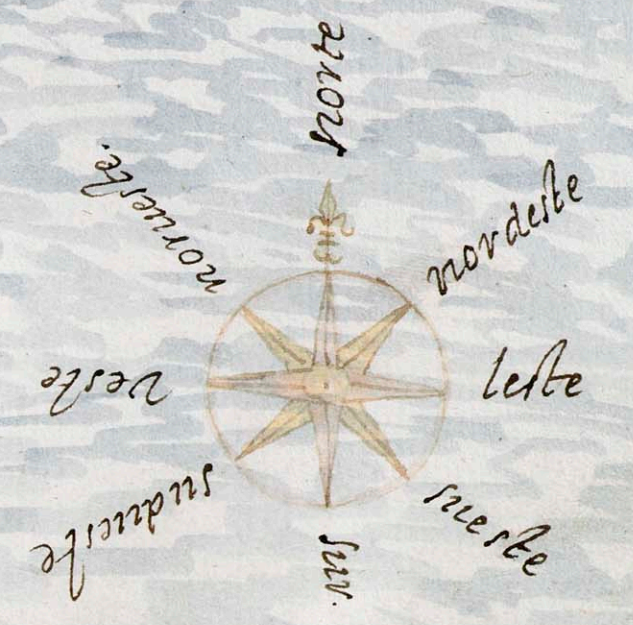 norte
nordeste
leste
sueste
sur.
sudueste
veste
norueste.